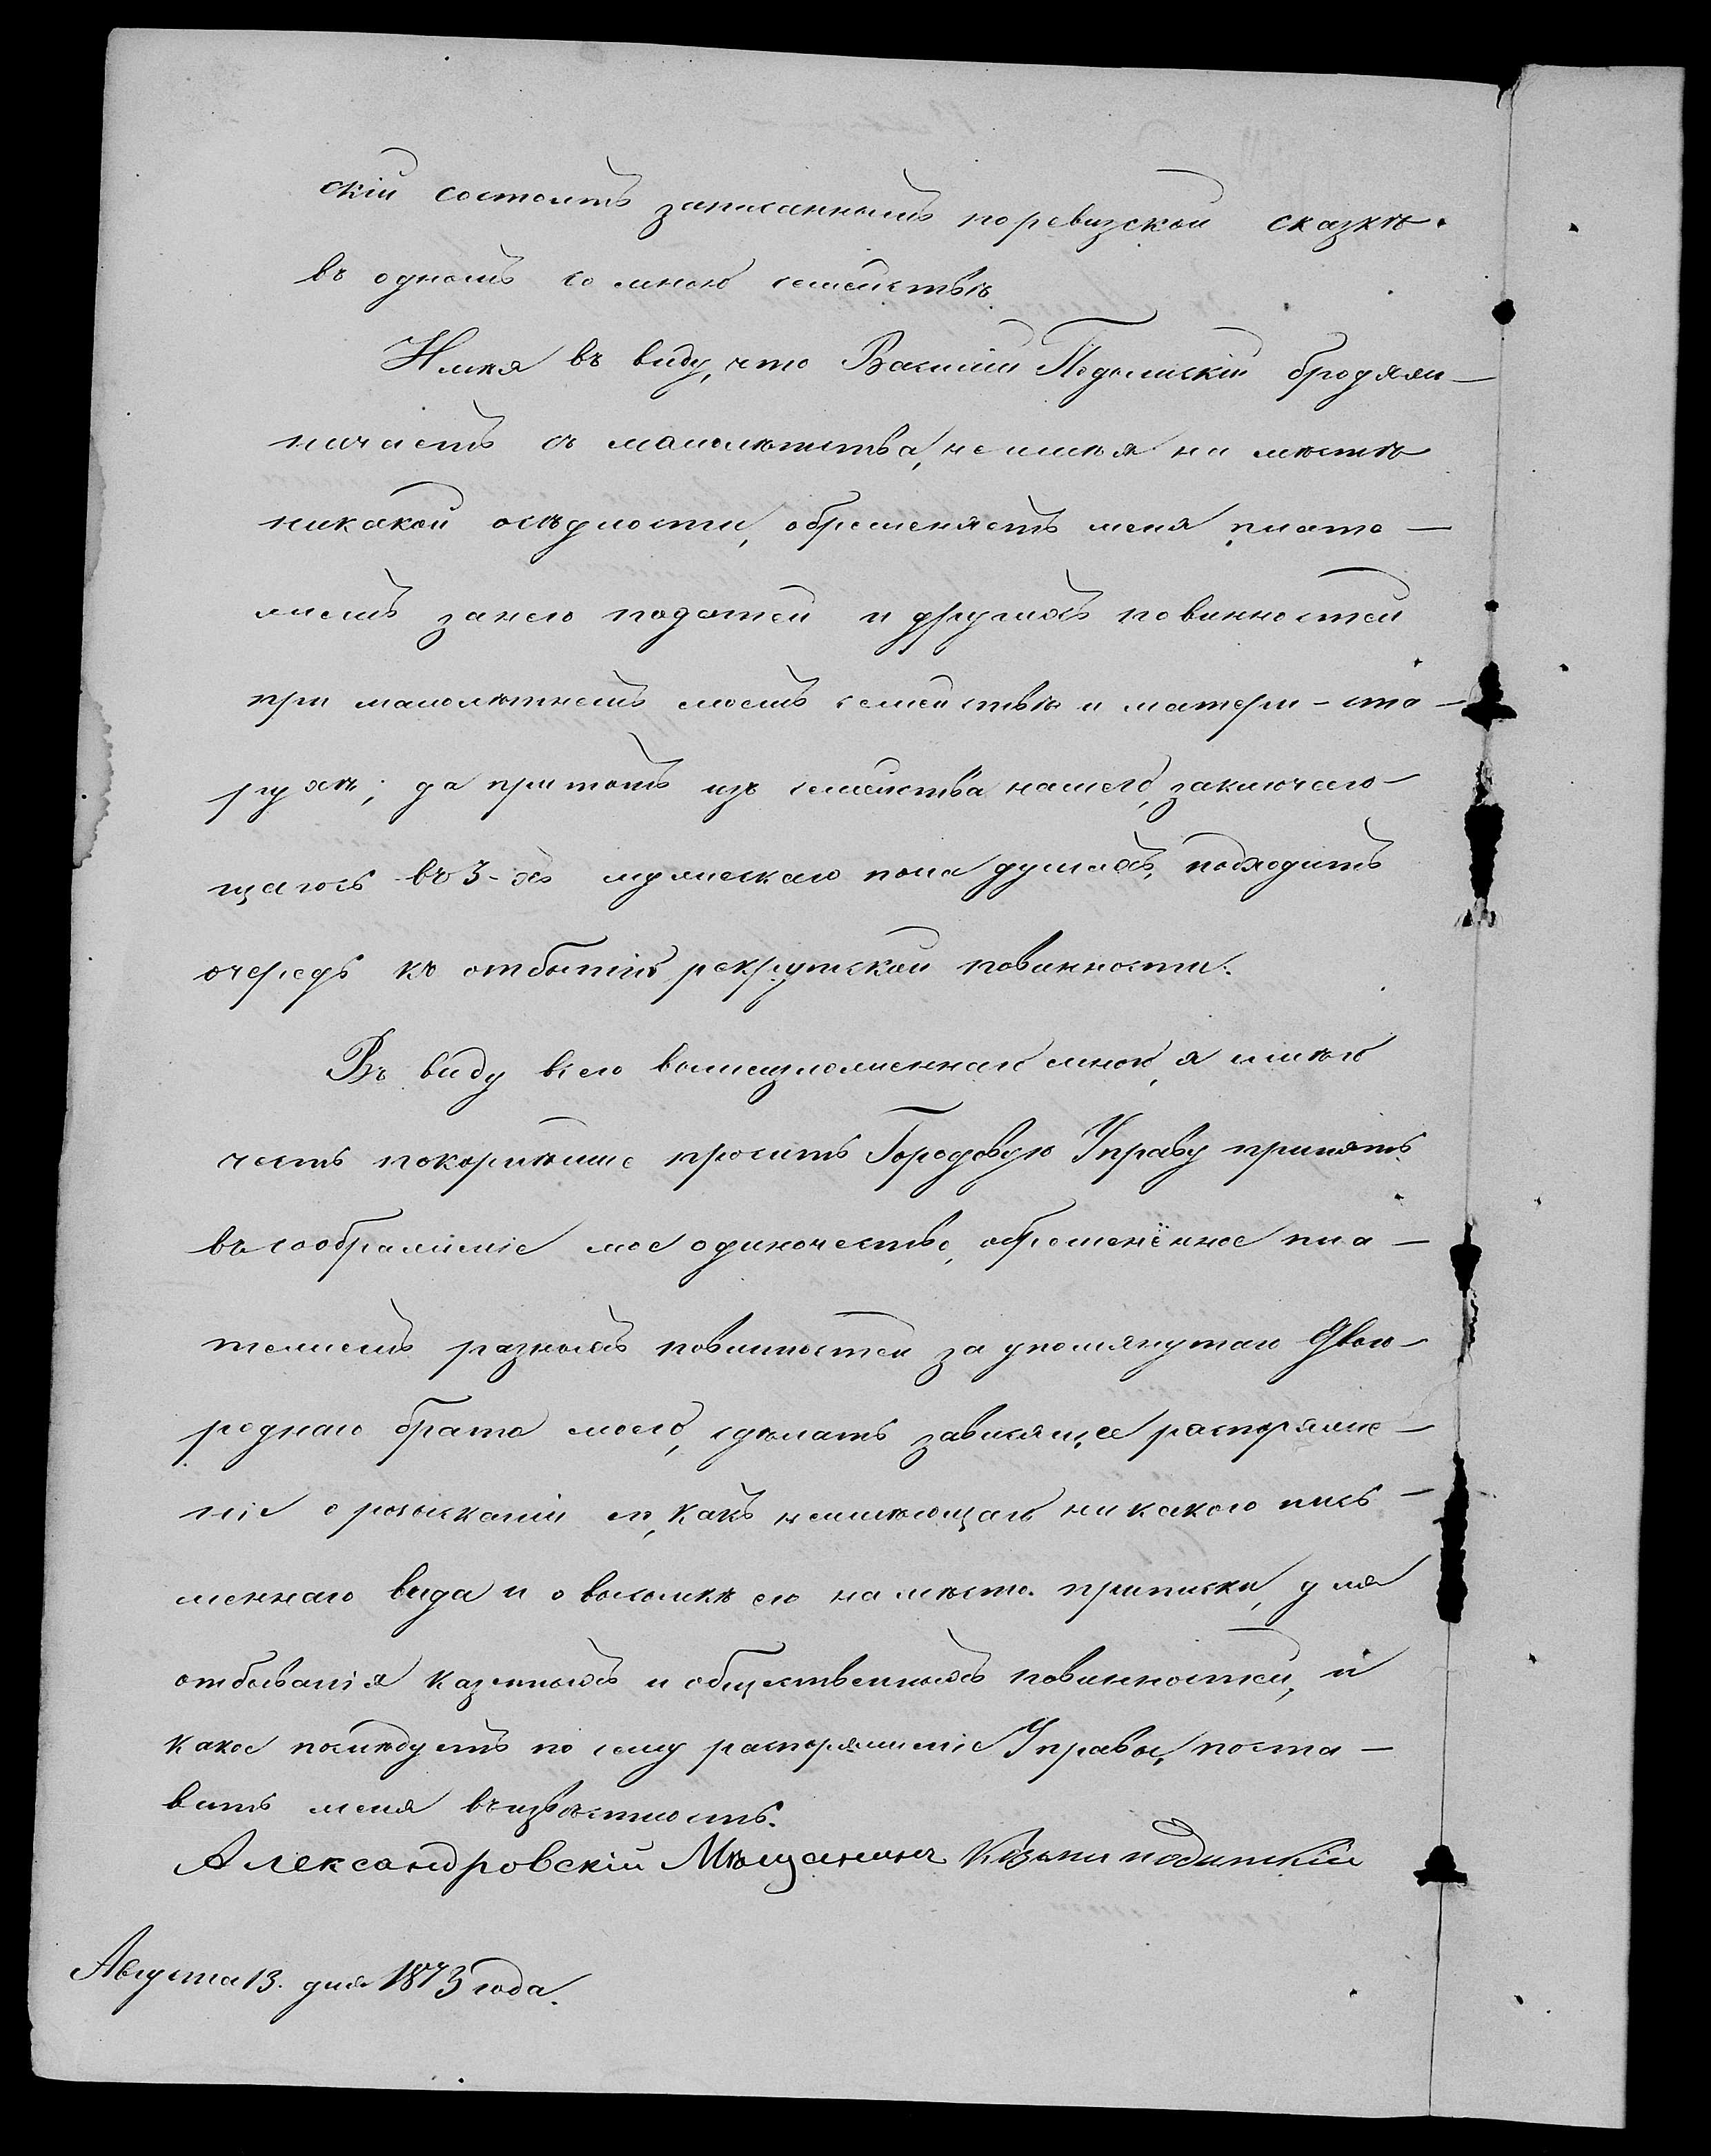 скій состоитъ записаннымъ по ревизской сказкѣ
въ одномъ со мною семействѣ.
Имѣя въ виду, что Василій Подольскій бродяж-
ничаетъ съ малолѣтства, не имѣя на мѣстѣ
никакой осѣдлости, обременяетъ меня плате-
жемъ за него податей и другихъ повинностей
при малолѣтнемъ моемъ семействѣ и матери-ста-
рухѣ; да при томъ изъ семейства нашего, заключаю-
щагося въ 3-хъ мужескаго пола душахъ, подходитъ
очередь къ отбытію рекрутской повинности.
Въ виду всего вышеизложеннаго мною, я имѣю
честь покорнѣйше просить Городовую Управу принять
въ соображеніе мое одиночество, обременённое пла-
тежемъ разныхъ повинностей за упомянутаго двою-
роднаго брата моего, сдѣлать зависящее распоряже-
ніе о розысканіи его, какъ неимѣющаго никакого пись-
меннаго вида и о высылкѣ его на мѣсто приписки, для
отбыванія казенныхъ и общественныхъ повинностей, и
какое послѣдуетъ по сему распоряженіе Управы, поста-
вить меня въ извѣстность.
Александровскій Мѣщанинъ Кузьма Подольскій
Августа 13. дня 1873 года.